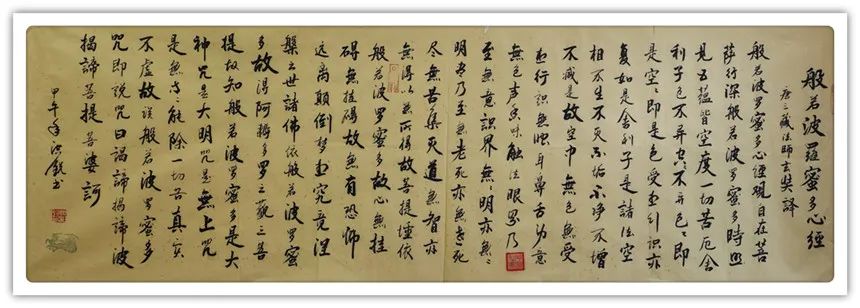 般若波羅蜜多心經
唐三藏法師玄奘譯
般若波羅蜜多心經觀自在菩
薩行深般若波羅蜜多時照
見五蘊皆空度一切苦厄舍
利子色不异空々不异色色即
是空々即是色受想行識亦
复如是舍利子是諸法空
相不生不灭不垢不净不增
不減是故空中無色無受
想行識無眼耳鼻舌身意
無色声香味触法眼界乃
至無意識界無々明亦無々
明尽乃至無老死亦無老死
尽無苦集灭道無智亦
無得以無所得故菩提埵依
般若波罗蜜多故心無挂
碍無挂碍故無有恐怖
远离顛倒梦想究竟涅
槃三世諸佛依般若波罗蜜
多故得阿耨多罗三藐三菩
提故知般若波罗蜜多是大
神咒是大明咒是無上咒
是無々能除一切苦真实
不虚故説般若波罗蜜多
咒即説咒曰揭諦揭諦波
揭諦菩提菩婆訶
甲午年洪书